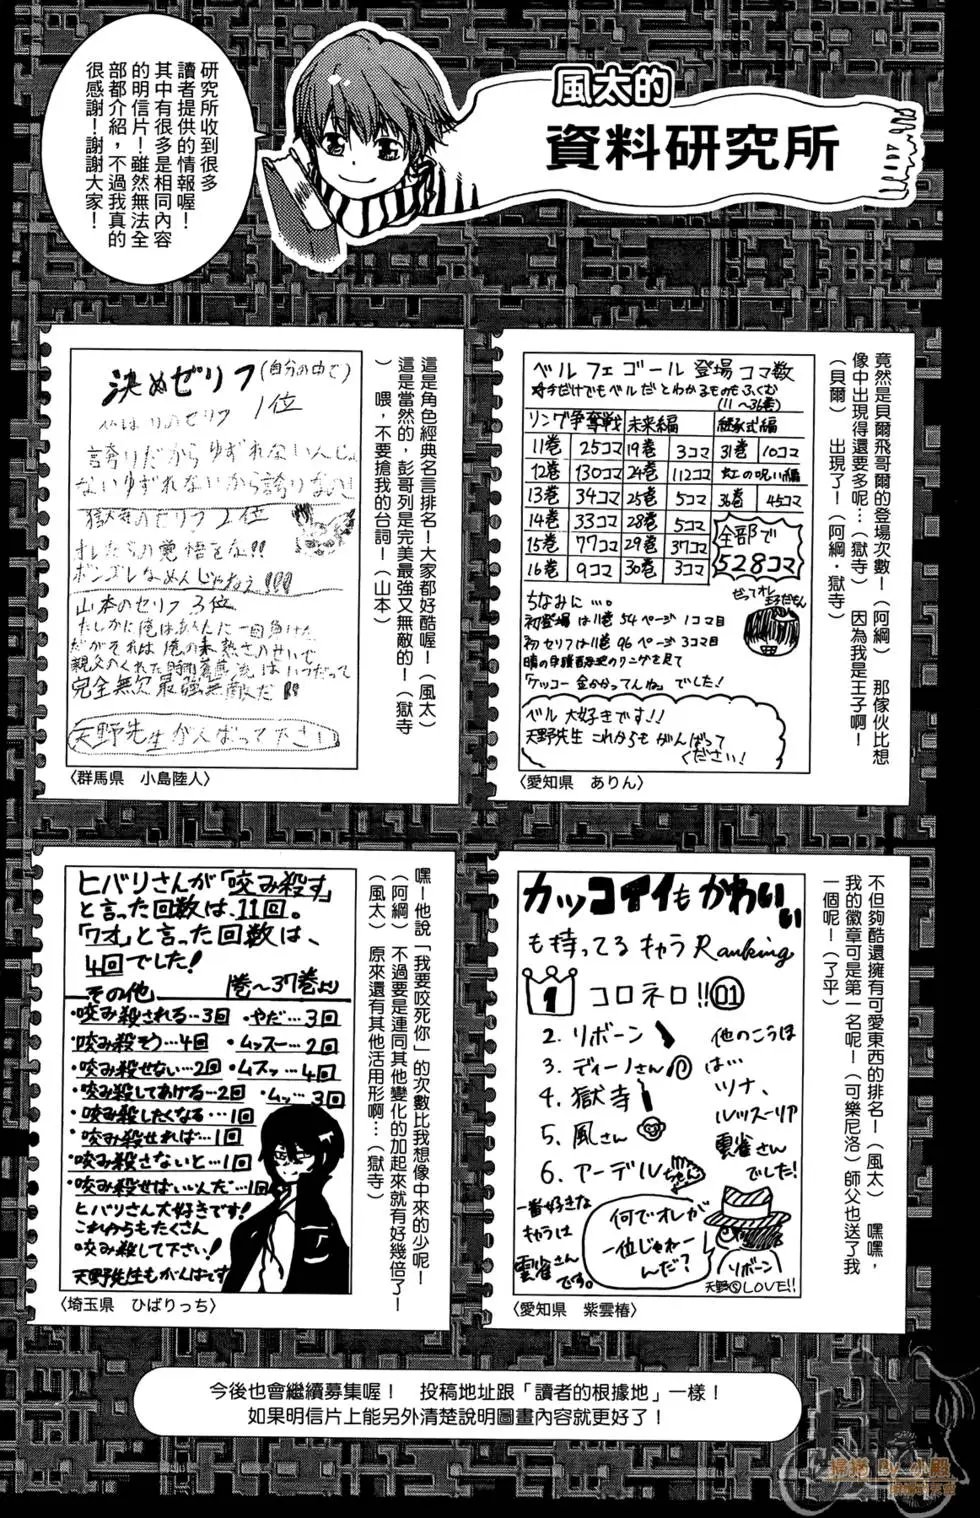 風太的
資料研究所
研究所收到很多
讀者提供的情報喔！
其中有很多是相同內容
的明信片！雖然無法全
部都介紹，不過我真的
很感謝！謝謝大家！
竟然是貝爾飛哥爾的登場次數！（阿綱） 那傢伙比想
像中出現得還要多呢…（獄寺） 因為我是王子啊！
（貝爾） 出現了！（阿綱・獄寺）
ベルフェゴール 登場コマ数
(11〜36巻)
リング争奪戦 未来編 継承式編
11巻 25コマ 19巻 3コマ 31巻 10コマ
12巻 130コマ 24巻 112コマ 虹の呪い編
13巻 34コマ 25巻 5コマ 36巻 45コマ
14巻 33コマ 28巻 5コマ
15巻 77コマ 29巻 37コマ
16巻 9コマ 30巻 3コマ
全部で
528コマ
だってオレ
王子だもん
ちなみに…。
初登場は11巻 54ページ 1コマ目
初セリフは11巻 96ページ 3コマ目
「ケッコー金かかってんね」でした！
ベル大好きです！！
天野先生 これからも がんばって
ください！
〈愛知県 ありん〉
這是角色經典名言排名！大家都好酷喔！（風太）
這是當然的，彭哥列是完美最強又無敵的！（獄寺
） 喂，不要搶我的台詞！（山本）
決めゼリフ(自分の中で)
1位
誇りだから ゆずれないんじゃ
ないゆずれないから誇りなの！
獄寺のセリフ 2位
オレたちの覚悟をな!!
ボンゴレなめんじゃねえ!!!
山本のセリフ 3位
たしかに俺はあんたに一回負けた
だがそれは俺の未熟さのせいで
親父のくれた時雨蒼燕流はいつだって
完全無欠最強無敵だ!!
天野先生がんばって下さい
〈群馬県 小島陸人〉
不但夠酷還擁有可愛東西的排名！（風太） 嘿嘿，
我的徽章可是第一名呢！（可樂尼洛）師父也送了我
一個呢！（了平）
カッコイイもかわいい
も持ってるキャラRanking
1 コロネロ!!01
2. リボーン
3. ディーノさん
4. 獄寺
5. 風さん
6. アーデルちゃん
他のこうほ
は…
ツナ、
ルッスーリア
雲雀さん
でした！
一番好きな
キャラは
雲雀さん
です。
何でオレが
一位じゃねー
んだ？
リボーン
天野先LOVE!!
〈愛知県 紫雲椿〉
嘿—他說「我要咬死你」的次數比我想像中來的少呢！
（阿綱）不過要是連同其他變化的加起來就有好幾倍了！
（風太） 原來還有其他活用形啊…（獄寺）
ヒバリさんが「咬み殺す」
と言った回数は、11回。
「ワオ」と言った回数は、
4回でした！
その他 1巻〜37巻より
・咬み殺される…3回 ・やだ…3回
・咬み殺そう…4回 ・ムッスー…2回
・咬み殺せない…2回 ・ムスッ…4回
・咬み殺してあげる…2回 ・ムッ…3回
・咬み殺したくなる…1回
・咬み殺せれば…1回
・咬み殺さないと…1回
・咬み殺せばいいんだ…1回
ヒバリさん大好きです！
これからもたくさん
咬み殺して下さい！
天野先生もがんばって
〈埼玉県 ひばりっち〉
今後也會繼續募集喔！ 投稿地址跟「讀者的根據地」一樣！
如果明信片上能另外清楚說明圖畫內容就更好了！